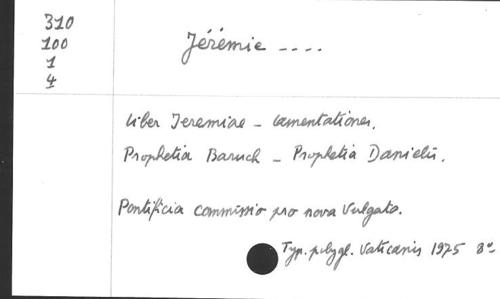 310
100
1
4
Jérémie ....
Liber Jeremiae - Lamentationes.
Prophetia Baruch - Prophetia Danielis.
Pontificia commissio pro nova Vulgata.
Typ. polygl. Vaticanis 1975 8°